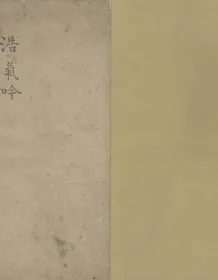 浩氣吟